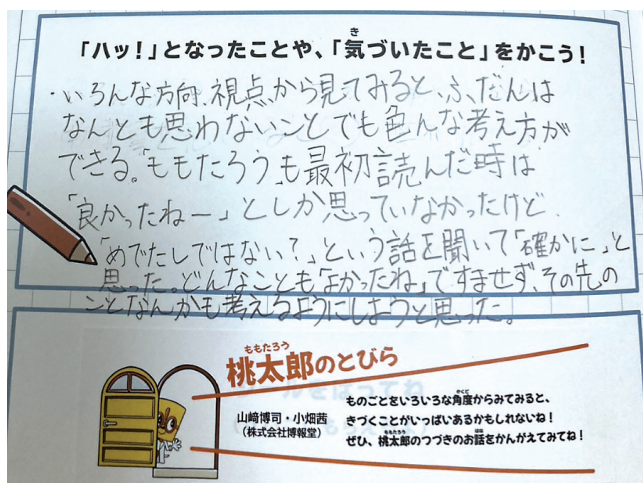 「ハッ！」となったことや、「気づいたこと」をかこう！
・いろんな方向、視点から見てみると、ふだんは
なんとも思わないことでも色んな考え方が
できる。「ももたろう」も最初読んだ時は
「良かったねー」としか思っていなかったけど、
「めでたしではない？」という話を聞いて「確かに」と
思った。どんなことも「よかったね」ですませず、その先の
ことなんかも考えるようにしようと思った。
桃太郎のとびら
山﨑博司・小畑茜
（株式会社博報堂）
ものごとをいろいろな角度からみてみると、
きづくことがいっぱいあるかもしれないね！
ぜひ、桃太郎のつづきのお話をかんがえてみてね！